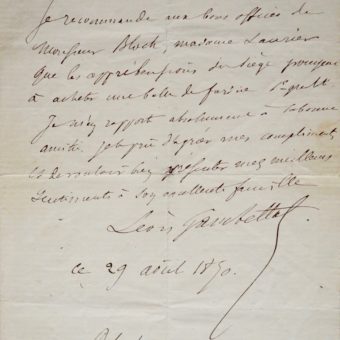 Je recommande aux bons offices de
Monsieur Bloch, madame Laurier
Que les appréhensions du siège poussent
à acheter une balle de farine
Je m'en rapporte absolument à sa bonne
amitié, mes compliments
et de vouloir bien présenter mes meilleurs
Sentiments à son excellente famille
Léon Gambetta
ce 29 août 1870.